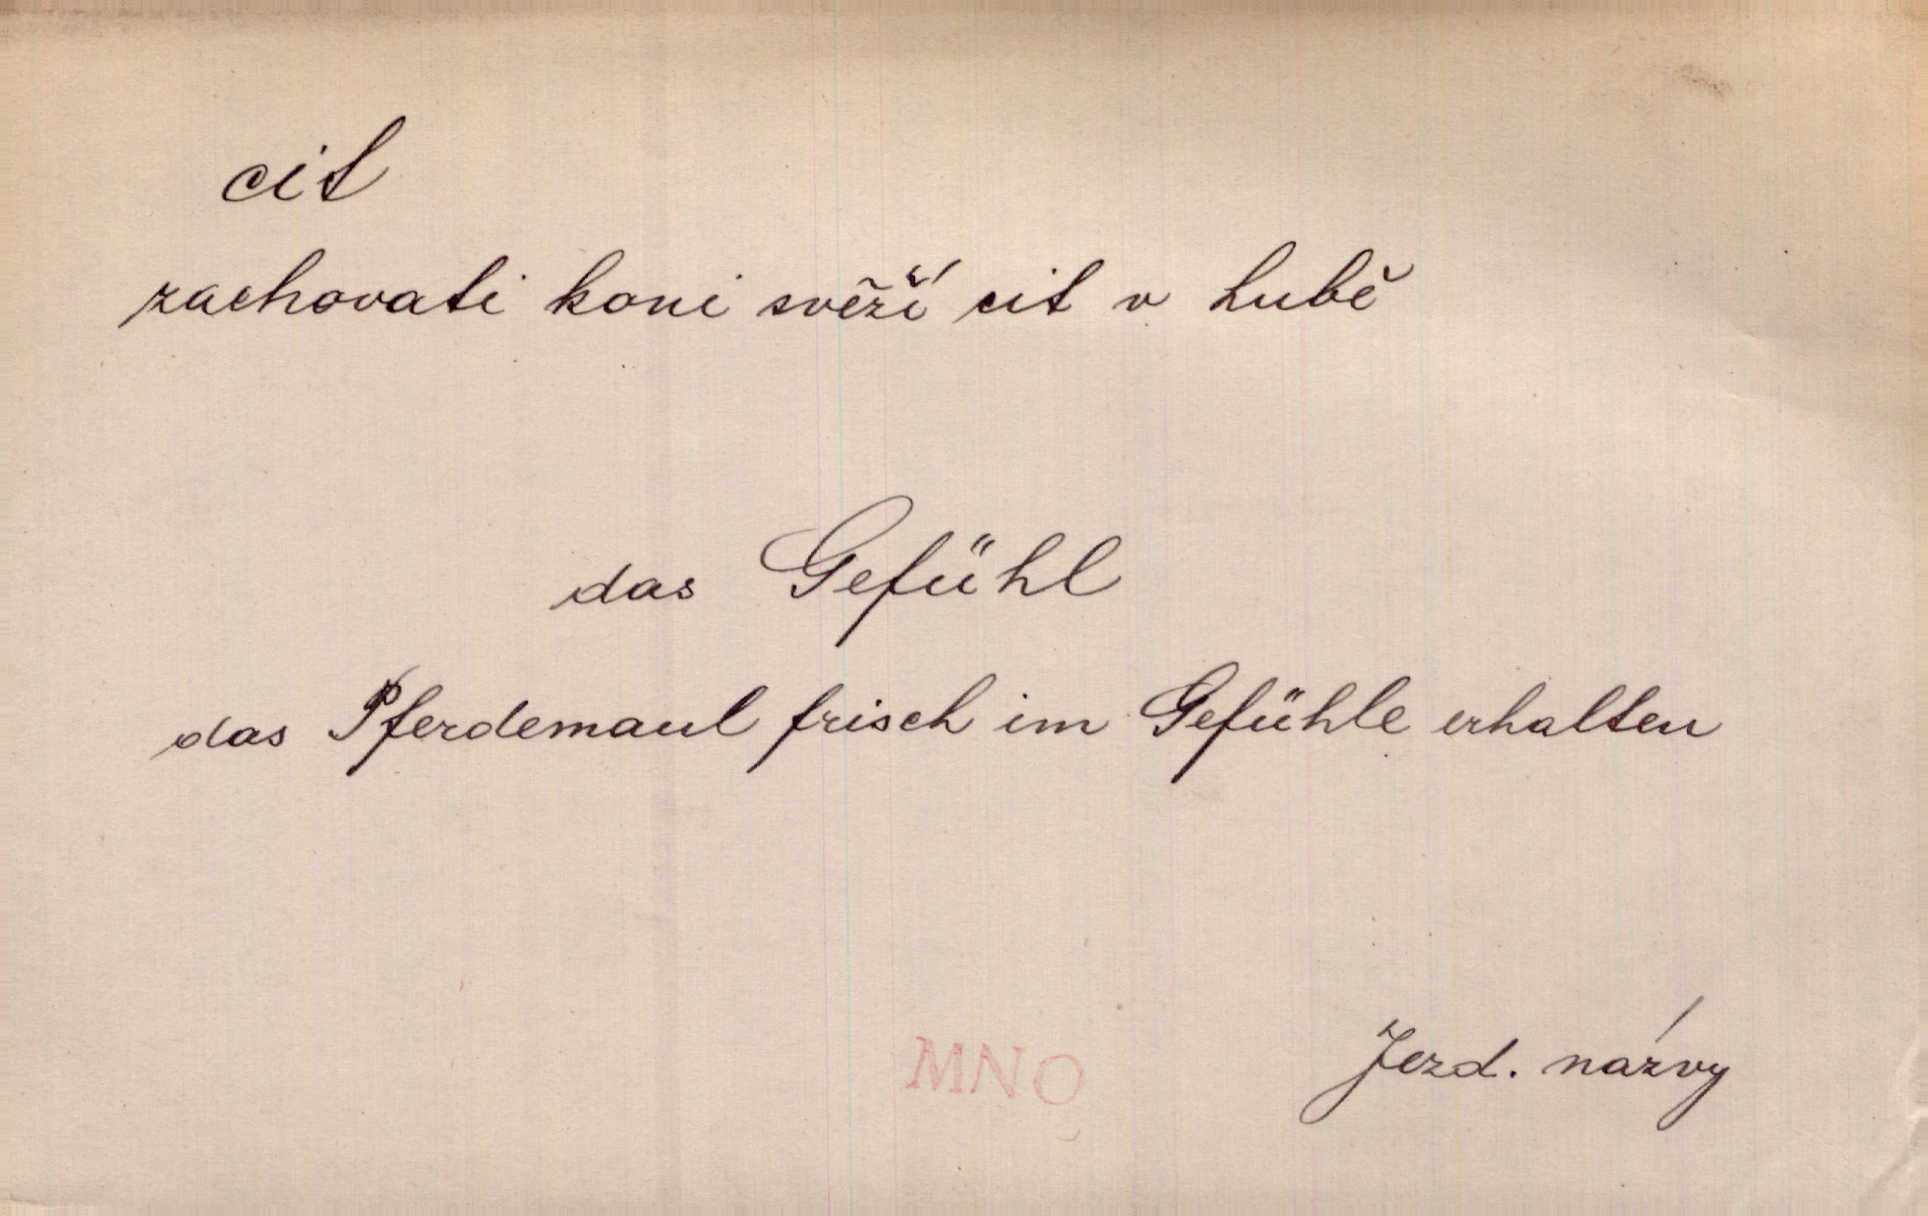 cit
zachovati koni svěží cit v hubě
das Gefühl
das Pferdemaul frisch im Gefühle erhalten
MNO
Jezd. názvy